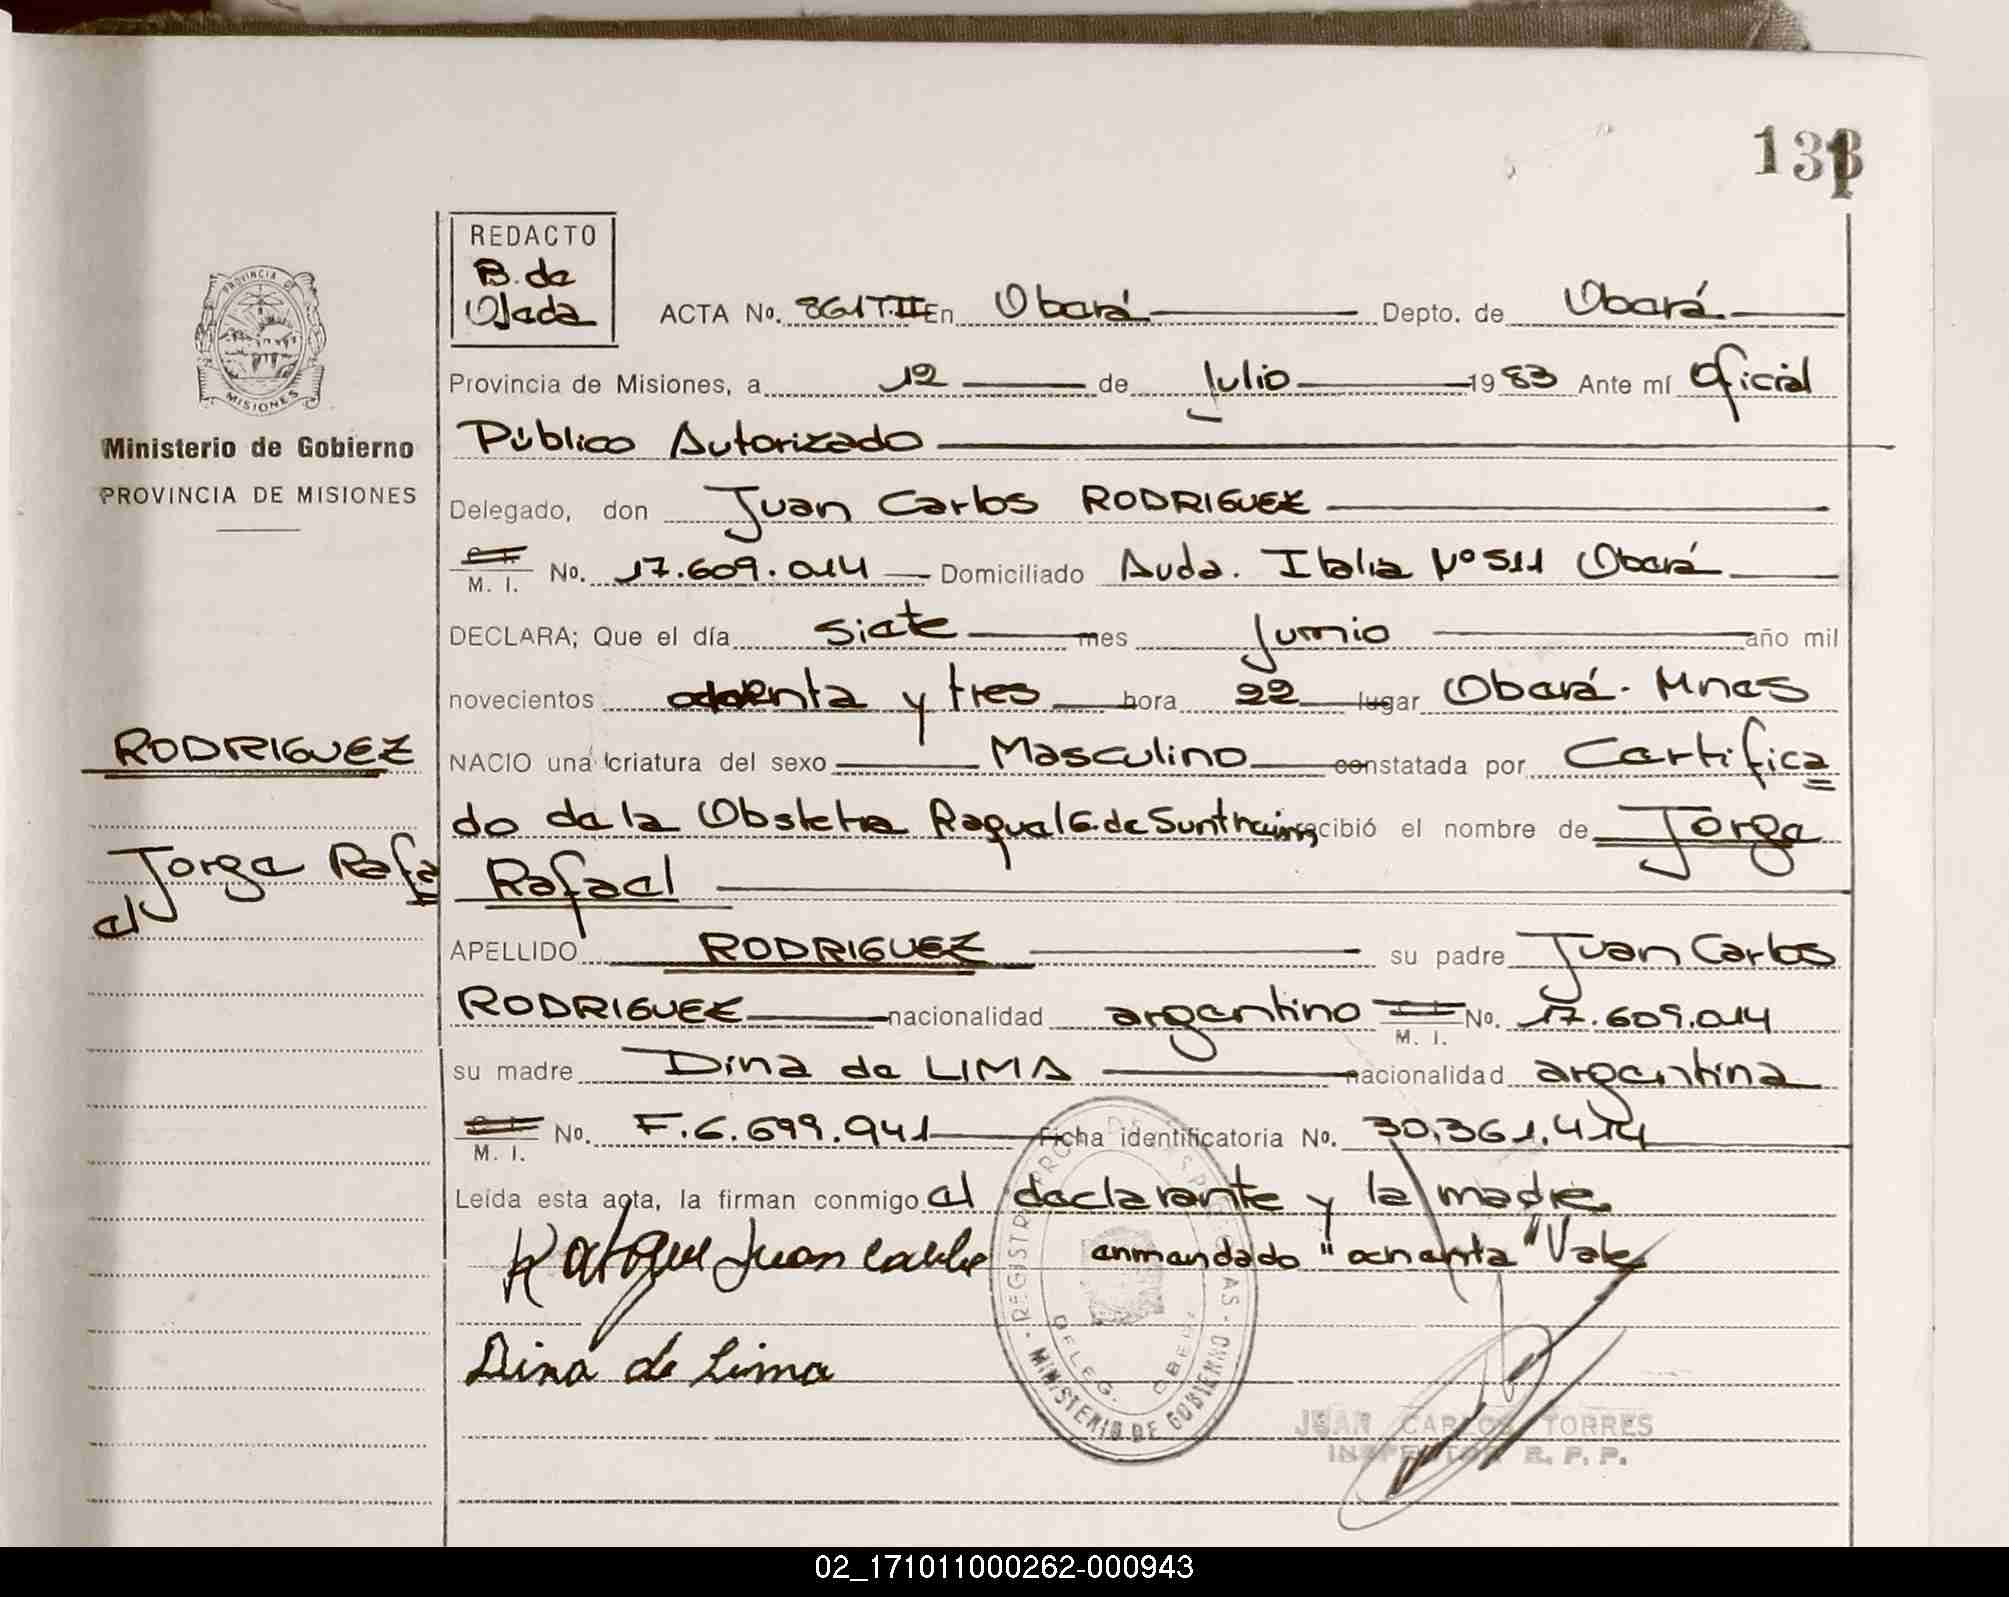 131
REDACTO
B. de
Ojeda
ACTA No. 861 T.II En Oberá Depto. de Oberá
Provincia de Misiones, a 12 de Julio 1983 Ante mí Oficial
Público Autorizado
PROVINCIA DE MISIONES
Ministerio de Gobierno
PROVINCIA DE MISIONES
Delegado, don Juan Carlos RODRIGUEZ
M. I. No. 17.609.014 Domiciliado Avda. Italia Nº 511 Oberá
DECLARA; Que el día siete mes Junio año mil
novecientos ochenta y tres hora 22 lugar Oberá - Mnes
NACIO una criatura del sexo Masculino constatada por Certifica
do de la Obstetra Raquel G. de recibió el nombre de Jorge
Rafael
RODRIGUEZ
Jorge Rafa
el
APELLIDO RODRIGUEZ su padre Juan Carlos
RODRIGUEZ nacionalidad argentino M. I. No. 17.609.014
su madre Dina de LIMA nacionalidad argentina
M. I. No. F.6.699.941 Ficha identificatoria No. 30.361.414
Leída esta acta, la firman conmigo el declarante y la madre.
enmendado "ochenta" Vale
Juan Carlos
Dina de Lima
REGISTRO PROV. DE LAS PERSONAS
DELEG. OBERA
MINISTERIO DE GOBIERNO
JUAN CARLOS TORRES
INSPECTOR R. P. P.
02_171011000262-000943